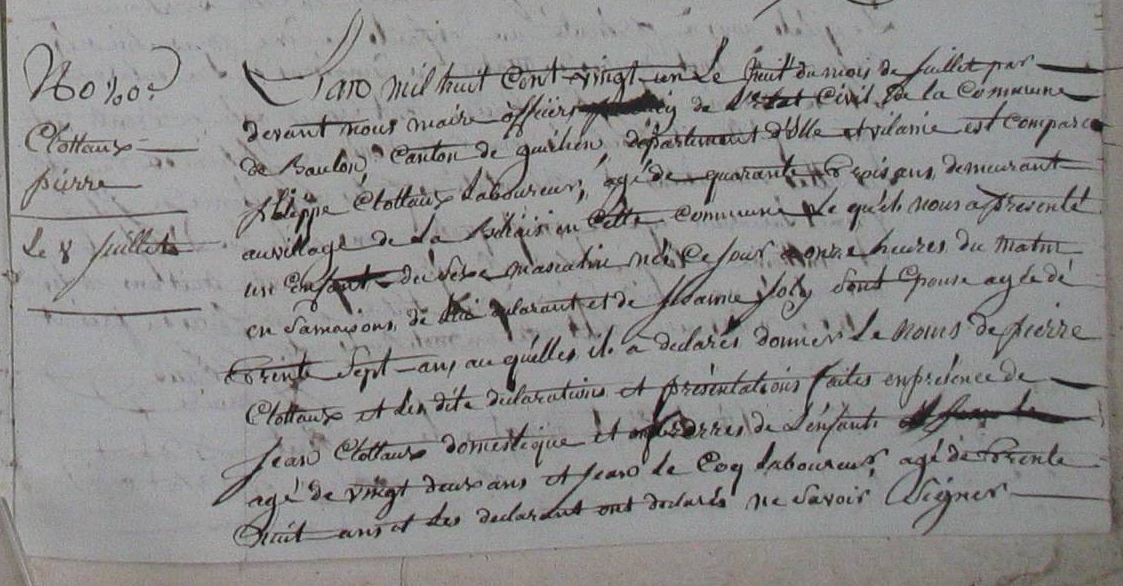 No 20e
Clottaux
pierre
Le 8 juillet
L'an mil huit cent vingt-un Le huit du mois de juillet par
devant nous maire officiers de L'état Civil de la Commune
de Baulon, Canton de guichen département d'ille et vilaine est comparu
philippe Clottaux Laboureur, âgé de quarante trois ans demeurant
au village de La en cette commune Le quel nous a présenté
un Enfant du sexe masculin née ce jour a onze heures du matin
en sa maisons, de lui déclarant et de joly sont Epouse agé dé
trente sept ans au quélles ils a declarés donner Le noms de pierre
Clottaux et Les dite déclarations et présentations faites en présence de
jean Clottaux domestique et de L'enfant
agé de vingt deux ans et jean Le Coq Laboureur, agé de trente
huit ans et Les declarant ont declarés ne savoir signer